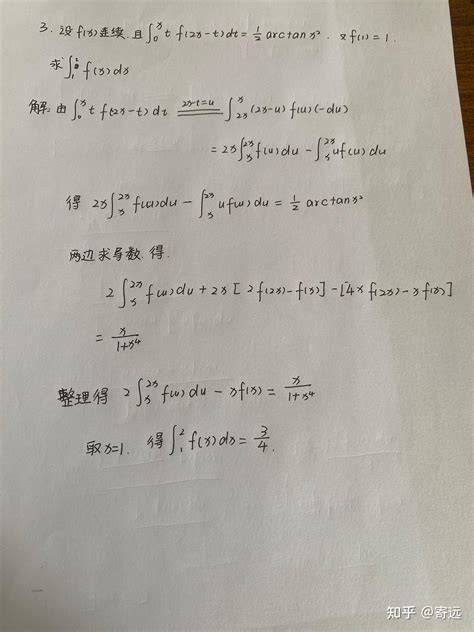 3. 设 f(x) 连续, 且 ∫₀ˣ t f(2x-t)dt = 1/2 arctan x². 又 f(1) = 1.
求 ∫₁² f(x)dx
解: 由 ∫₀ˣ t f(2x-t)dt =(2x-t=u)= ∫₂ₓˣ (2x-u) f(u)(-du)
= 2x∫ₓ²ˣ f(u)du - ∫ₓ²ˣ u f(u)du
得 2x∫ₓ²ˣ f(u)du - ∫ₓ²ˣ u f(u)du = 1/2 arctan x²
两边求导数, 得
2∫ₓ²ˣ f(u)du + 2x[2f(2x)-f(x)] - [4x f(2x) - x f(x)]
= x/(1+x⁴)
整理得 2∫ₓ²ˣ f(u)du - x f(x) = x/(1+x⁴)
取 x=1, 得 ∫₁² f(x)dx = 3/4.
知乎 @寄远